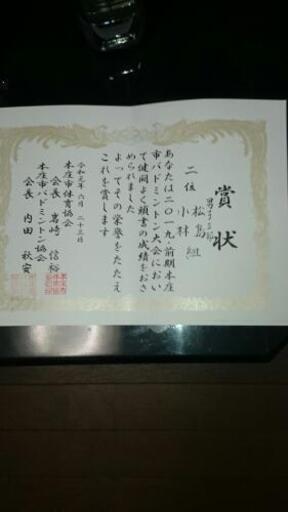 賞状
男子
二位 松島
小林 組
あなたは二〇一九・前期本庄
市バドミントン大会におい
て健闘よく頭書の成績をおさ
められました
よってその栄誉をたたえ
これを賞します
令和元年六月二十三日
本庄市体育協会
会長 岩崎 信裕
本庄市バドミントン協会
会長 内田 秋安